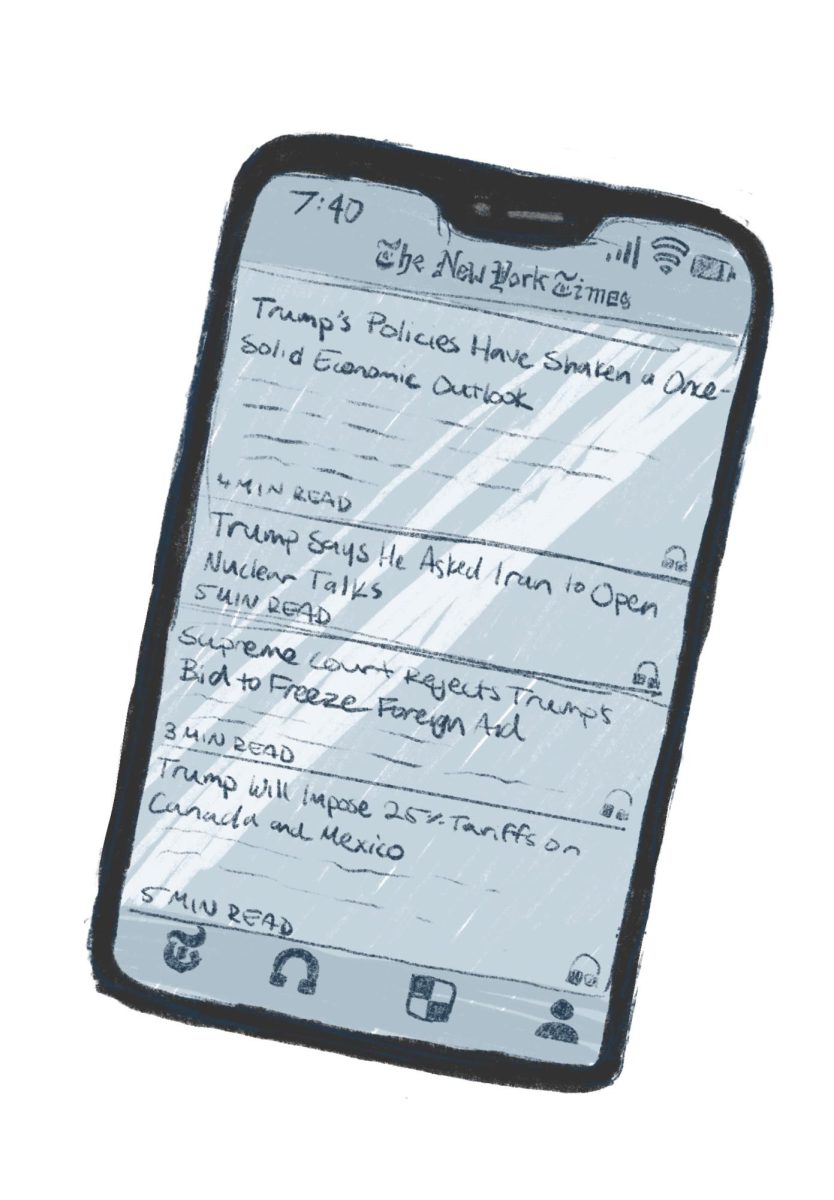 7:40
The New York Times
Trump's Policies Have Shaken a Once-
Solid Economic Outlook
4 MIN READ
Trump Says He Asked Iran to Open
Nuclear Talks
5 MIN READ
Supreme Court Rejects Trump's
Bid to Freeze Foreign Aid
3 MIN READ
Trump Will Impose 25% Tariffs on
Canada and Mexico
5 MIN READ
T